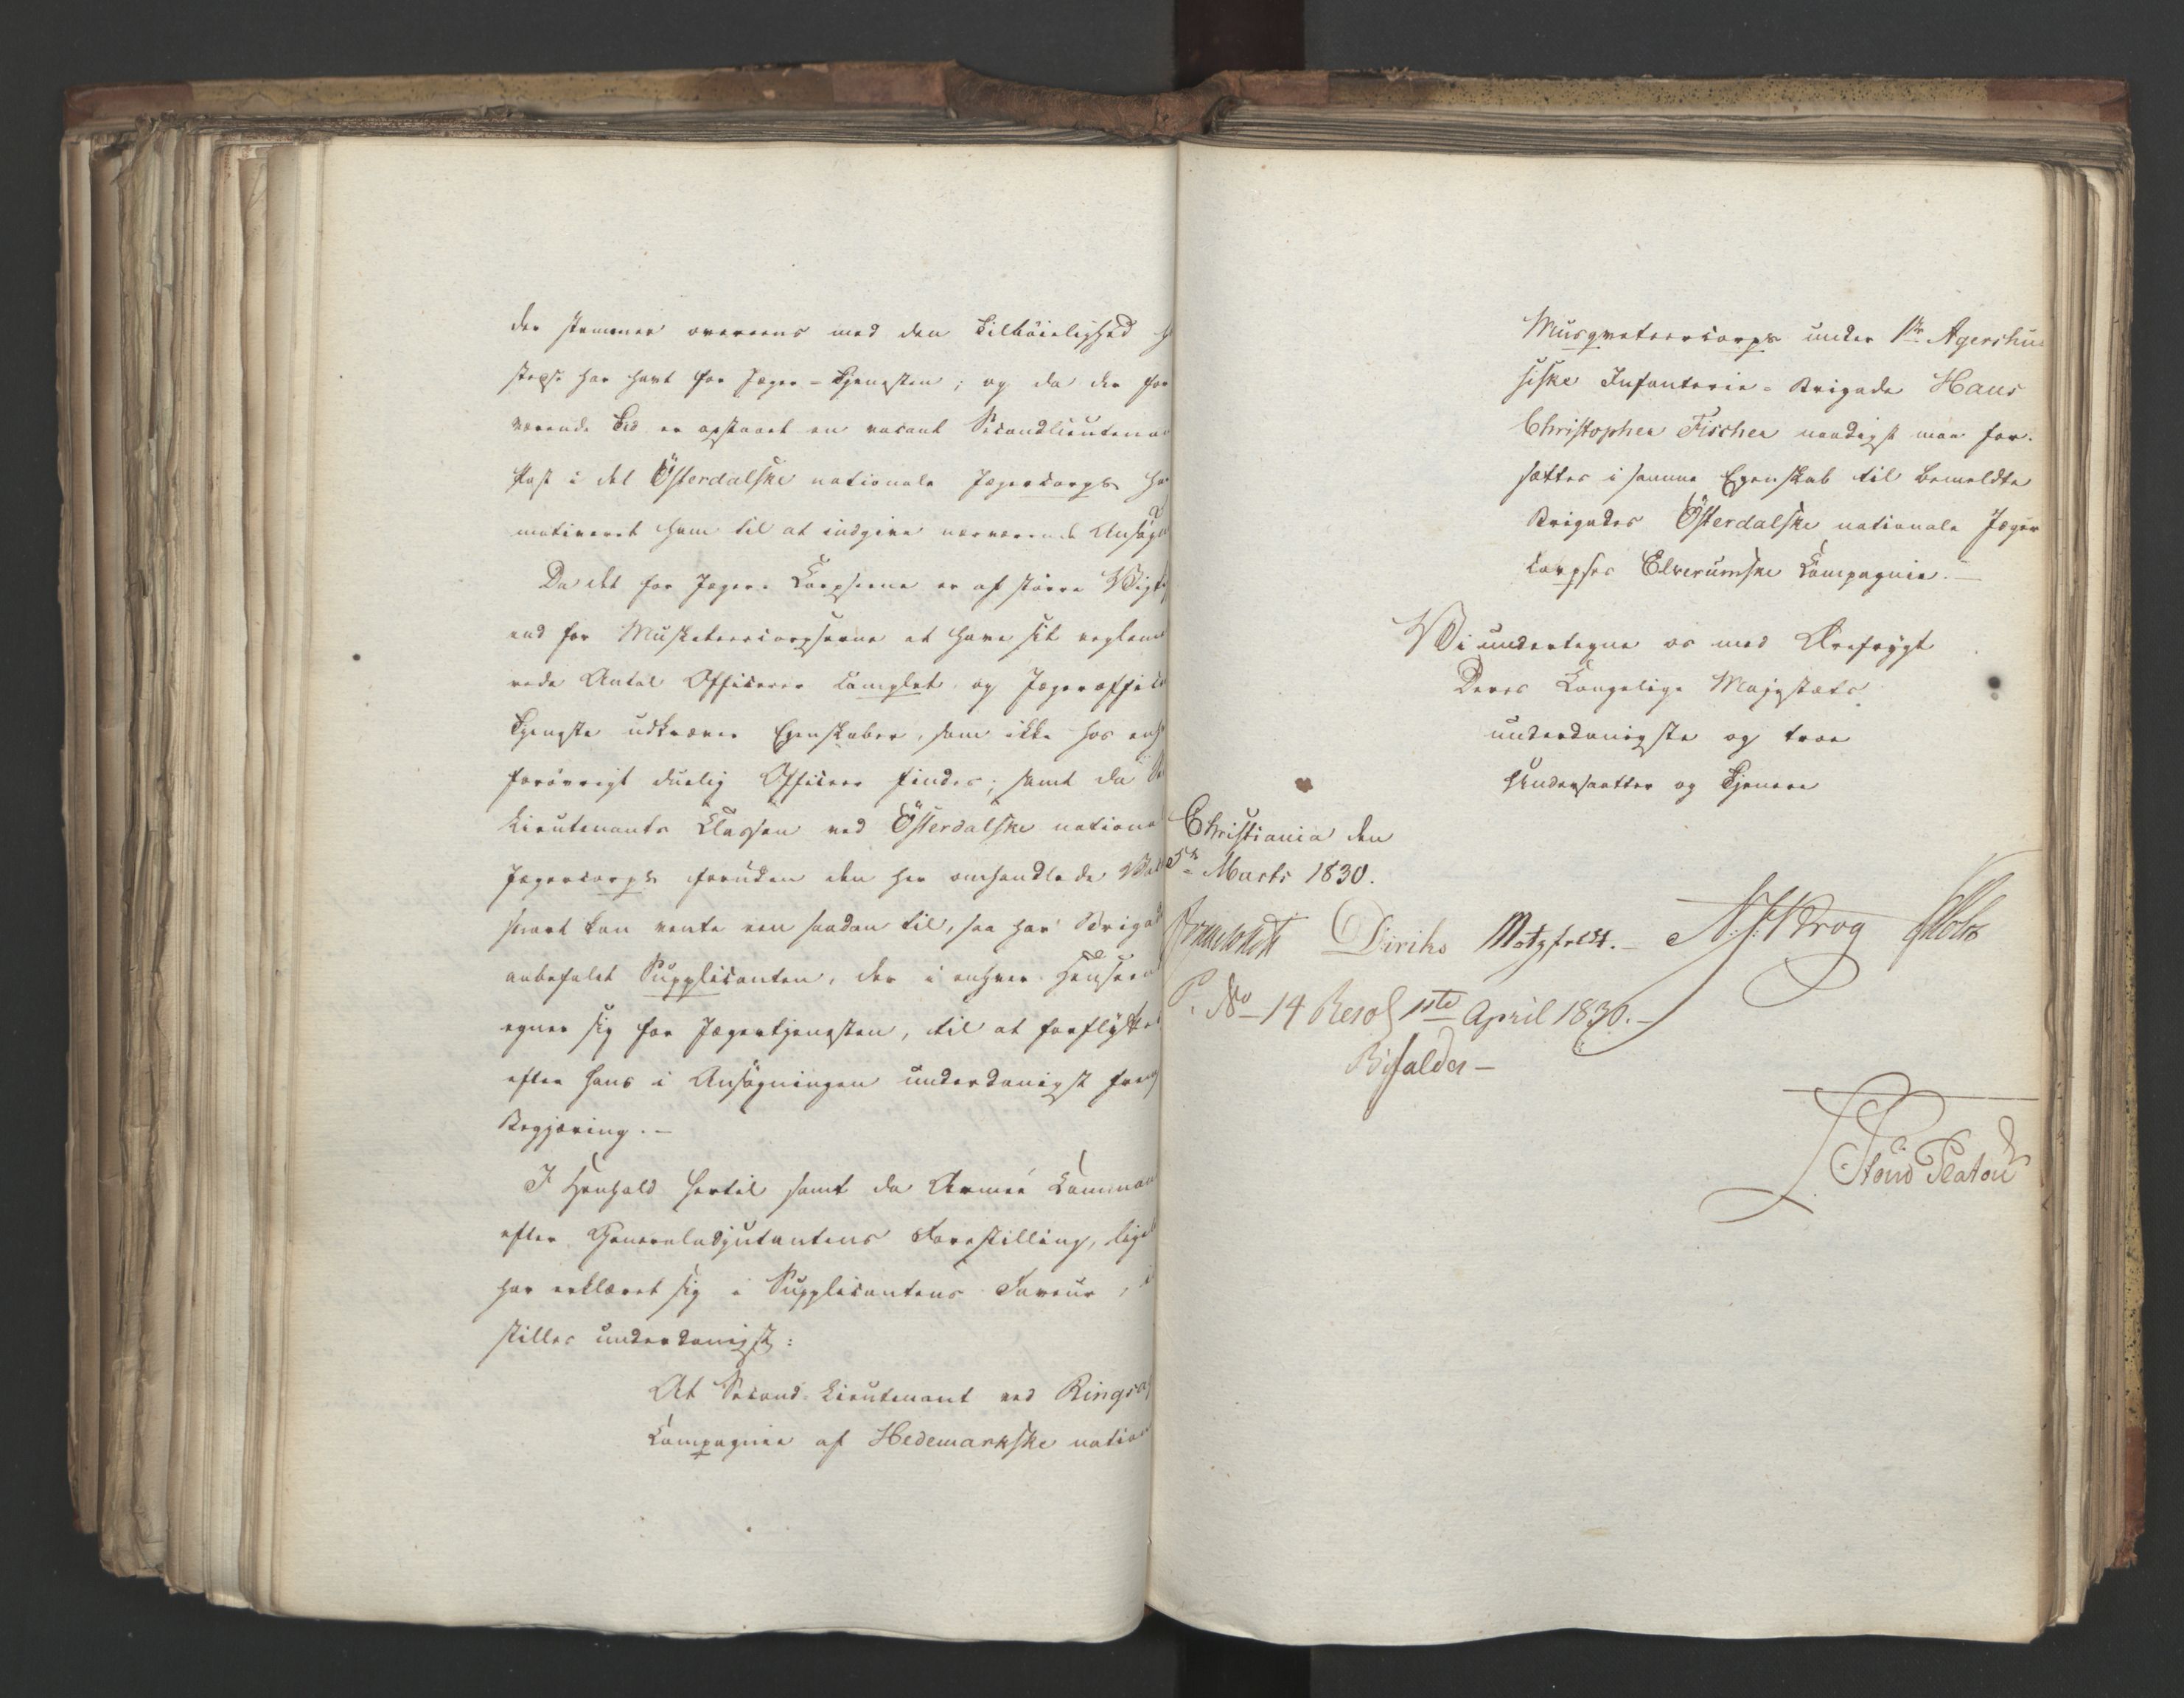 der stemmer overeens med den Tilbøielighed
stedse har havt for Jæger-Tjenesten; og da der for
værende Tid er opstaaet en vacant Secondlieutenan
Post i det Österdalske nationale Jægercorps ha
motiveret ham til at indgive nærværende Ansøgn
Da det for Jæger-Corpserne er af større Vigt
end for Musketeercorpserne at have sit reglem
rede Antal Officerer complet og Jægeroffice
Tjeneste udkræver Egenskaber, som ikke hos enh
forövrigt duelig Officeer findes; samt da Se
Lieutenants Classen ved Österdalske nationa
Jægercorps foruden den her omhandlede Va
snart kan vente een saadan til, saa har Briga
anbefalet Supplicanten, der i enhver Henseen
egner sig for Jægertjenesten, til at forflytte
efter hans i Ansøgningen underdanigst frem
Begjæring. -
I Henhold hertil samt da Armee Comman
efter Generaladjutantens Forestilling, lige
har erklæret sig i Supplicantens Faveur, i
stilles underdanigst:
At Second-Lieutenant ved Ringsa
Compagnie af Hedemarkske nation
Musqveteercorps under 1ste Agershuu
siske Infanterie-Brigade Hans
Christopher Fischer naadigst maa for-
sættes i samme Egenskab til bemeldte
Brigades Österdalske nationale Jæger
Corpses Elverumske Compagnie. -
Vi undertegne os med Ærefrygt
Deres Kongelige Majestæts
underdanigste og troe
Undersaatter og Tjenere
Christiania den
5te Marts 1830.
Diriks Motzfeldt. - N. J. Krog Holst
P. No 14 Resol 1ste April 1830. -
Bifaldes -
Stoud Platou